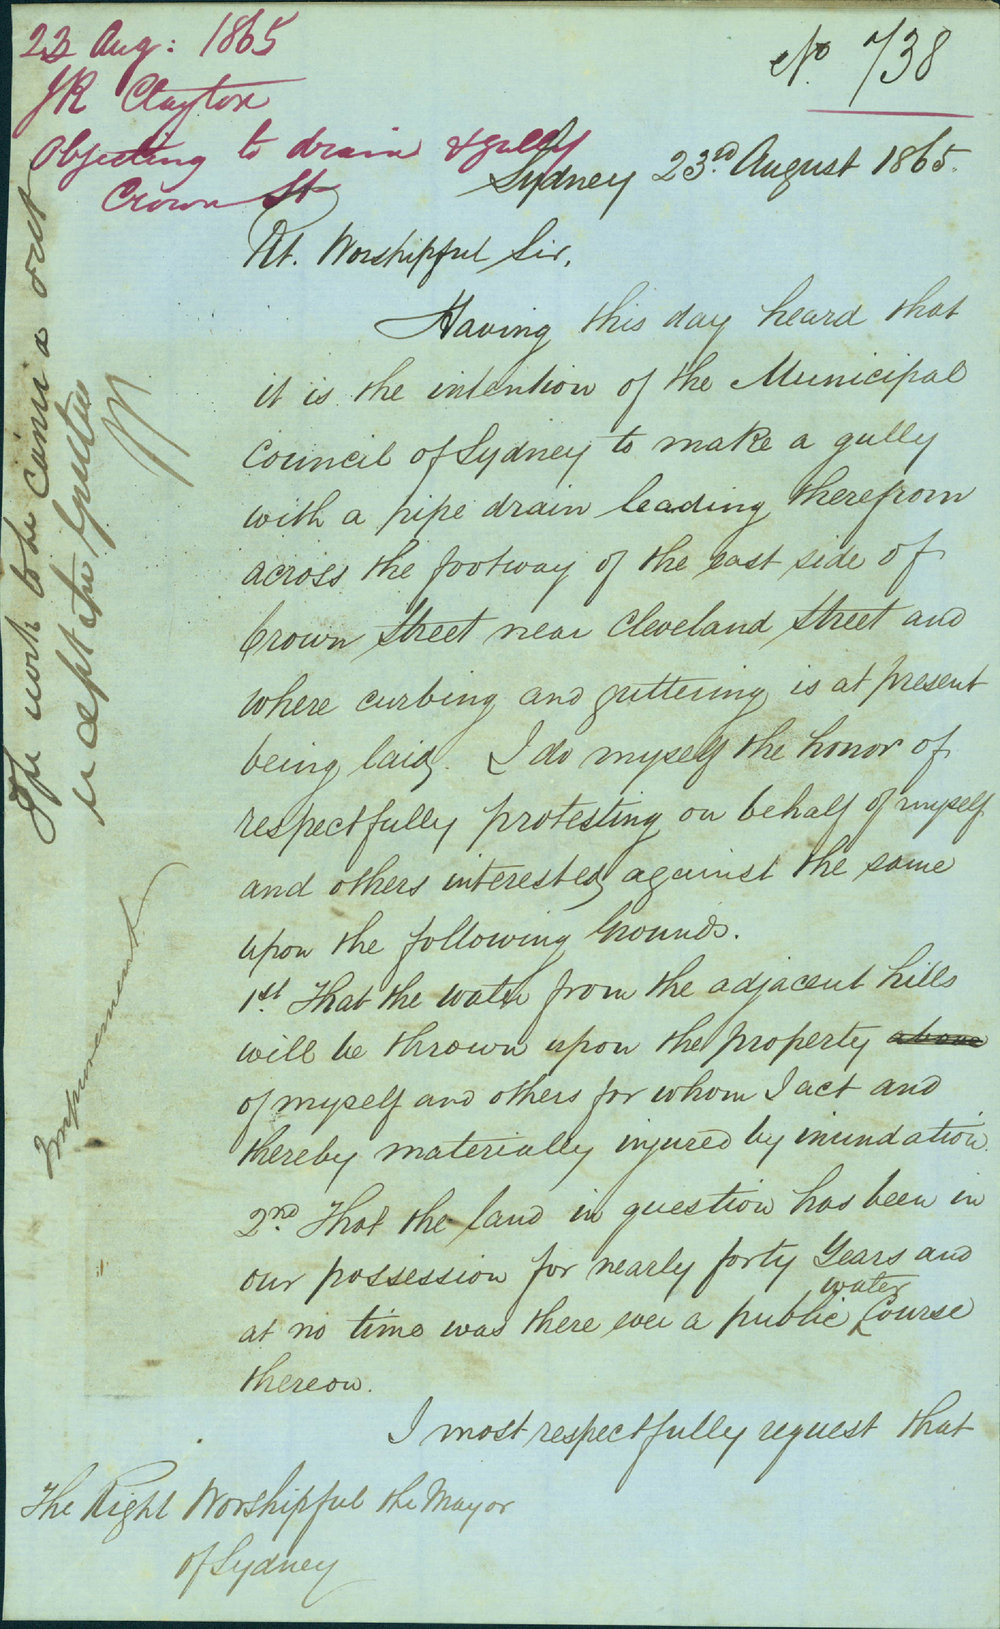 23 Aug: 1865
JR Clayton
Objecting to drain & gully
Crown St
No. 738
Sydney 23rd. August 1865.
Rt. Worshipful Sir,
Having this day heard that
it is the intention of the Municipal
Council of Sydney to make a gully
with a pipe drain leading therefrom
across the footway of the east side of
Crown Street near Cleveland Street and
where curbing and guttering is at present
being laid. I do myself the honor of
respectfully protesting on behalf of myself
and others interested, against the same
upon the following Grounds.
1st. That the water from the adjacent hills
will be thrown upon the property above
of myself and others for whom I act and
thereby materially injured by inundation.
2nd. That the land in question has been in
our possession for nearly forty Years and
at no time was there ever a public water Course
thereon.
I most respectfully request that
The Right Worshipful the Mayor
of Sydney
The work to be carried out
except the
Improvement